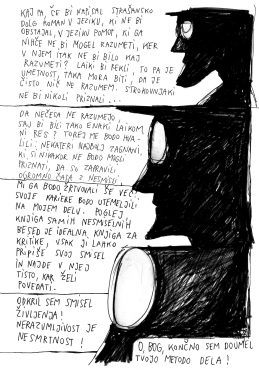 KAJ PA, ČE BI NAPISAL STRAŠANSKO
DOLG ROMAN V JEZIKU, KI NE BI
OBSTAJAL, V JEZIKU POMOT, KI GA
NIHČE NE BI MOGEL RAZUMETI, KER
V NJEM ITAK NE BI BILO KAJ
RAZUMETI? LAIKI BI REKLI, TO PA JE
UMETNOST, TAKA MORA BITI, DA JE
ČISTO NIČ NE RAZUMEM. STROKOVNJAKI
NE BI NIKOLI PRIZNALI ...
DA NEČESA NE RAZUMEJO,
SAJ BI BILI TAKO ENAKI LAIKOM,
NI RES? TOREJ ME BODO HVA-
LILI. NEKATERI NAJBOLJ ZAGNANI,
KI SI NIKAKOR NE BODO MOGLI
PRIZNATI, DA SO ZAPRAVILI
OGROMNO ČASA Z NESMISLI,
MI GA BODO ŽRTVOVALI ŠE VEČ,
SVOJE KARIERE BODO UTEMELJILI
NA MOJEM DELU. POGLEJ
KNJIGA SAMIH NESMISELNIH
BESED JE IDEALNA KNJIGA ZA
KRITIKE, VSAK JI LAHKO
PRIPIŠE SVOJ SMISEL
IN NAJDE V NJEJ
TISTO, KAR ŽELI
POVEDATI.
ODKRIL SEM SMISEL
ŽIVLJENJA!
NERAZUMLJIVOST JE
NESMRTNOST!
O, BOG, KONČNO SEM DOUMEL
TVOJO METODO DELA!